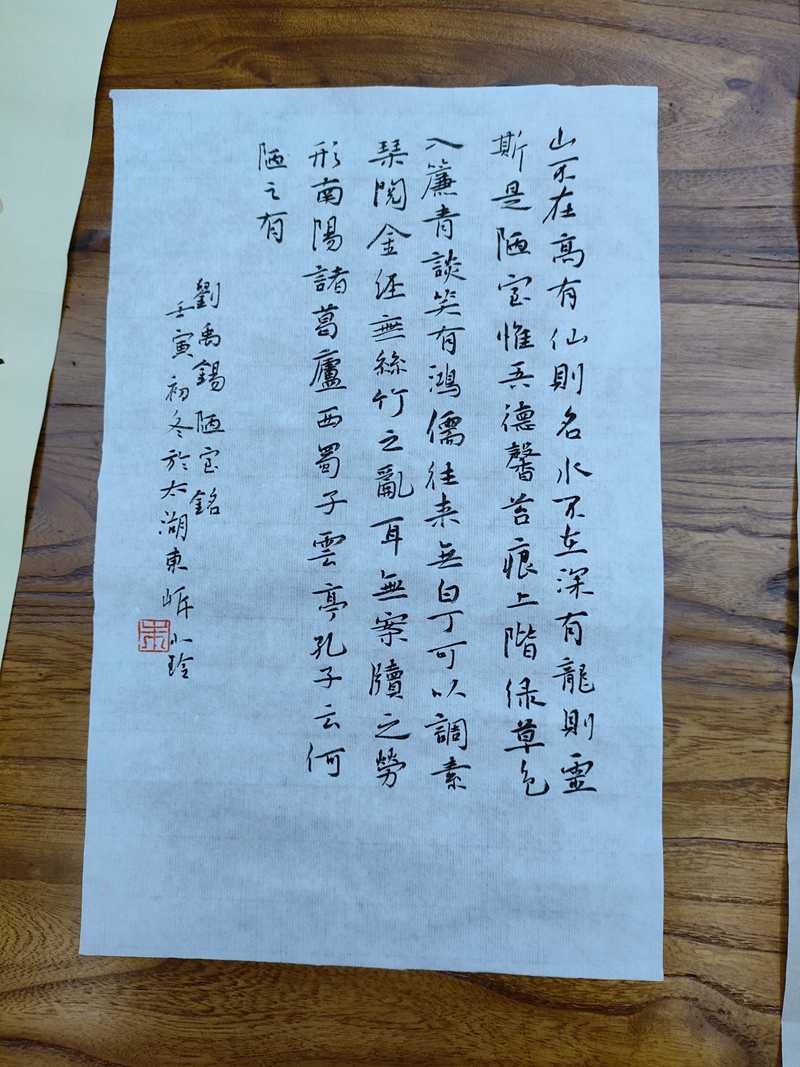 山不在高有仙則名水不在深有龍則靈
斯是陋室惟吾德馨苔痕上階绿草色
入簾青談笑有鴻儒往来無白丁可以調素
琴閲金经無絲竹之亂耳無案牘之勞
形南陽諸葛廬西蜀子雲亭孔子云何
陋之有
劉禹錫陋室銘
壬寅初冬於太湖東岸小玲
朱